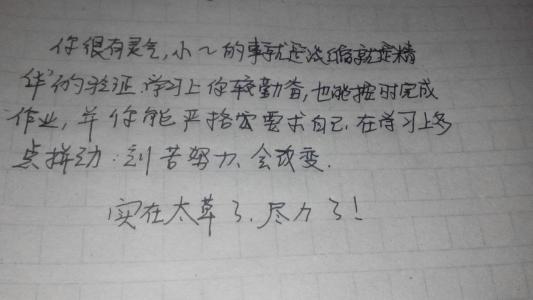 你很有灵气,小~的事就是浓缩就是精
华"的验证.学习上你较勤奋,也能按时完成
作业,并你能严格要求自己.在学习上多
点拼劲.刻苦努力、会改变.
实在太草了.尽力了!